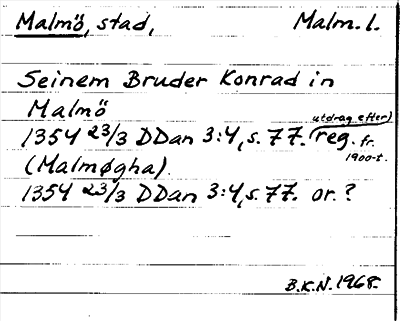 Malmö, stad, Malm. l.
Seinem Bruder Konrad in
Malmö
1354 23/3 DDan 3:4, s. 77. (utdrag efter) reg. fr. 1900-t.
(Malmøgha).
1354 23/3 DDan 3:4, s. 77. or.?
B.K.N. 1968.